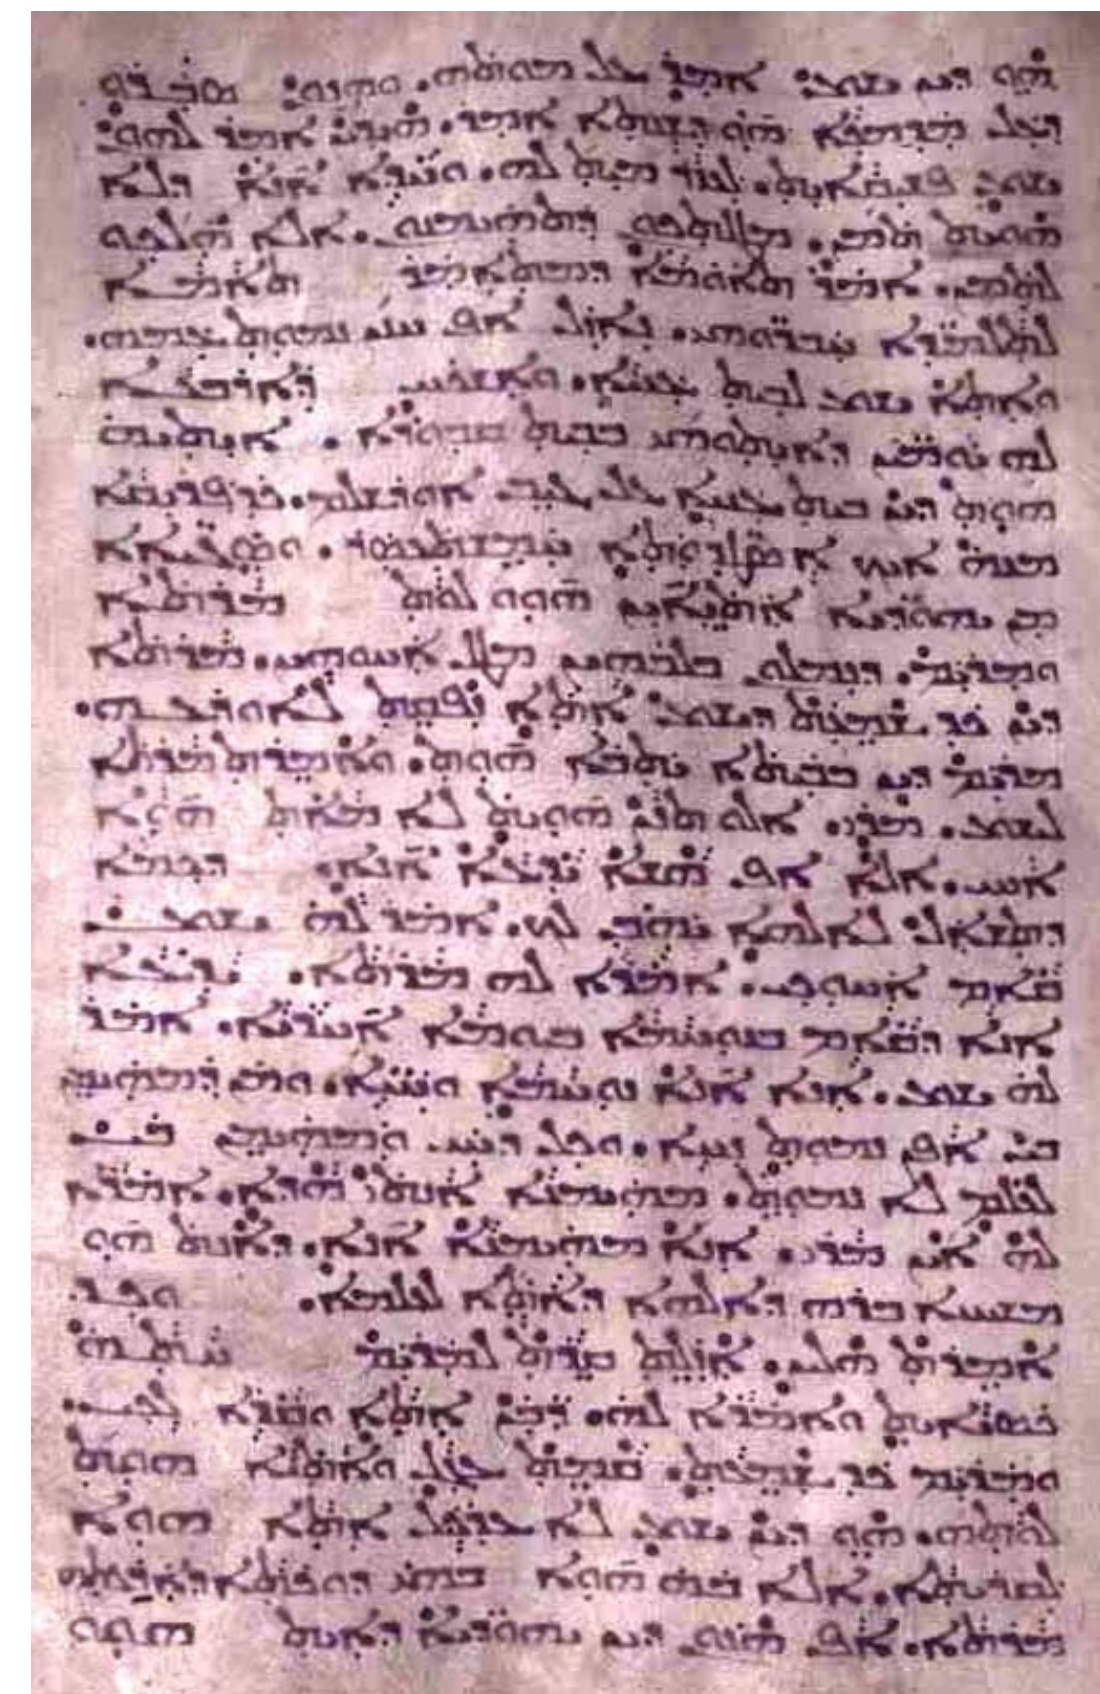 ܗܘ ܕܝܢ ܝܫܘܥ ܐܡܪ ܥܠ ܡܘܬܗ. ܘܗܢܘܢ ܣܒܪܘ
ܕܥܠ ܡܕܡܟܐ ܗܘ ܕܫܢܬܐ ܐܡܪ. ܗܝܕܝܢ ܐܡܪ ܠܗܘܢ
ܝܫܘܥ ܦܫܝܩܐܝܬ. ܠܥܙܪ ܡܝܬ ܠܗ. ܘܚܕܐ ܐܢܐ ܕܠܐ
ܗܘܝܬ ܬܡܢ. ܡܛܠܬܟܘܢ ܕܬܗܝܡܢܘܢ. ܐܠܐ ܗܠܟܘ
ܠܬܡܢ. ܐܡܪ ܬܐܘܡܐ ܕܡܬܐܡܪ ܬܐܡܐ
ܠܬܠܡܝܕܐ ܚܒܪ̈ܘܗܝ. ܢܐܙܠ ܐܦ ܚܢܢ ܢܡܘܬ ܥܡܗ.
ܘܐܬܐ ܝܫܘܥ ܠܒܝܬ ܥܢܝܐ. ܘܐܫܟܚ ܕܐܪܒܥܐ
ܠܗ ܝܘܡ̈ܝܢ ܕܐܝܬܘܗܝ ܒܒܝܬ ܩܒܘܪܐ. ܐܝܬܝܗ
ܗܘܬ ܕܝܢ ܒܝܬ ܥܢܝܐ ܥܠ ܓܢܒ ܐܘܪܫܠܡ. ܟܕ ܦܪܝܩܐ
ܡܢܗ ܐܝܟ ܐܣ̈ܛܕܘܬܐ ܚܡܫܬܥܣܪ. ܘܣܓܝ̈ܐܐ
ܡܢ ܝܗܘܕ̈ܝܐ ܗܘܘ ܠܘܬ ܡܪܬܐ
ܘܡܪܝܡ. ܕܢܡܠܘܢ ܒܠܒܗܝܢ ܡܛܠ ܐܚܘܗܝܢ. ܡܪܬܐ
ܕܝܢ ܟܕ ܫܡܥܬ ܕܝܫܘܥ ܐܬܐ ܢܦܩܬ ܠܐܘܪܥܗ.
ܡܪܝܡ ܕܝܢ ܒܒܝܬܐ ܝܬܒܐ ܗܘܬ. ܘܐܡܪܬ ܡܪܬܐ
ܠܝܫܘܥ. ܡܪܝ. ܐܠܘ ܬܢܢ ܗܘܝܬ ܠܐ ܡܐܬ ܗܘܐ
ܐܚܝ. ܐܠܐ ܐܦ ܗܫܐ ܝܕܥܐ ܐܢܐ. ܕܟܡܐ
ܕܬܫܐܠ ܠܐܠܗܐ ܝܗܒ ܠܟ. ܐܡܪ ܠܗ ܝܫܘܥ
ܩܐܡ ܐܚܘܟܝ. ܐܡܪܐ ܠܗ ܡܪܬܐ. ܝܕܥܐ
ܐܢܐ ܕܩܐܡ ܒܢܘܚܡܐ ܒܝܘܡܐ ܐܚܪܝܐ. ܐܡܪ
ܠܗ ܝܫܘܥ. ܐܢܐ ܐܢܐ ܢܘܚܡܐ ܘܚܝ̈ܐ. ܘܡܢ ܕܡܗܝܡܢ
ܒܝ ܐܦܢ ܢܡܘܬ ܢܚܐ. ܘܟܠ ܕܚܝ ܘܡܗܝܡܢ ܒܝ
ܠܥܠܡ ܠܐ ܢܡܘܬ. ܡܗܝܡܢܬܝ ܗܕܐ. ܐܡܪܐ
ܠܗ ܐܝܢ ܡܪܝ. ܐܢܐ ܡܗܝܡܢܐ ܐܢܐ. ܕܐܢܬ ܗܘ
ܡܫܝܚܐ ܒܪܗ ܕܐܠܗܐ ܕܐܬܐ ܠܥܠܡܐ. ܘܟܕ
ܐܡܪܬ ܗܠܝܢ. ܐܙܠܬ ܩܪܬ ܠܡܪܝܡ ܚܬܗ
ܟܣܝܐܝܬ ܘܐܡܪܐ ܠܗ. ܪܒܢ ܐܬܐ ܘܩܪܐ ܠܟܝ.
ܘܡܪܝܡ ܟܕ ܫܡܥܬ. ܩܡܬ ܥܓܠ ܘܐܬܝܐ ܗܘܬ
ܠܘܬܗ. ܗܘ ܕܝܢ ܝܫܘܥ ܠܐ ܥܕܟܝܠ ܐܬܐ ܗܘܐ
ܠܩܪܝܬܐ. ܐܠܐ ܒܗ ܗܘܐ ܒܗܝ ܕܘܟܬܐ ܕܐܪܥܬܗ
ܡܪܬܐ. ܐܦ ܗܢܘܢ ܕܝܢ ܝܗܘܕ̈ܝܐ ܕܐܝܬ ܗܘܘ